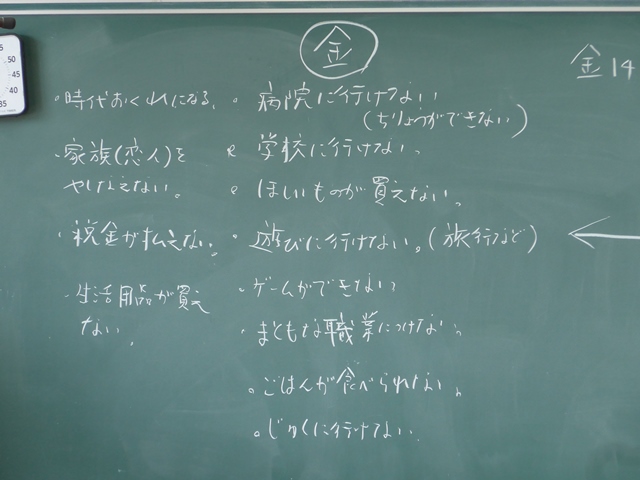 金
金14
・時代おくれになる。
・家族(恋人)を
やしなえない。
・税金が払えない。
・生活用品が買え
ない。
・病院に行けない
(ちりょうができない)
・学校に行けない。
・ほしいものが買えない。
・遊びに行けない。(旅行など)
・ゲームができない
・まともな職業につけない。
・ごはんが食べられない。
・じゅくに行けない
55
50
45
40
35